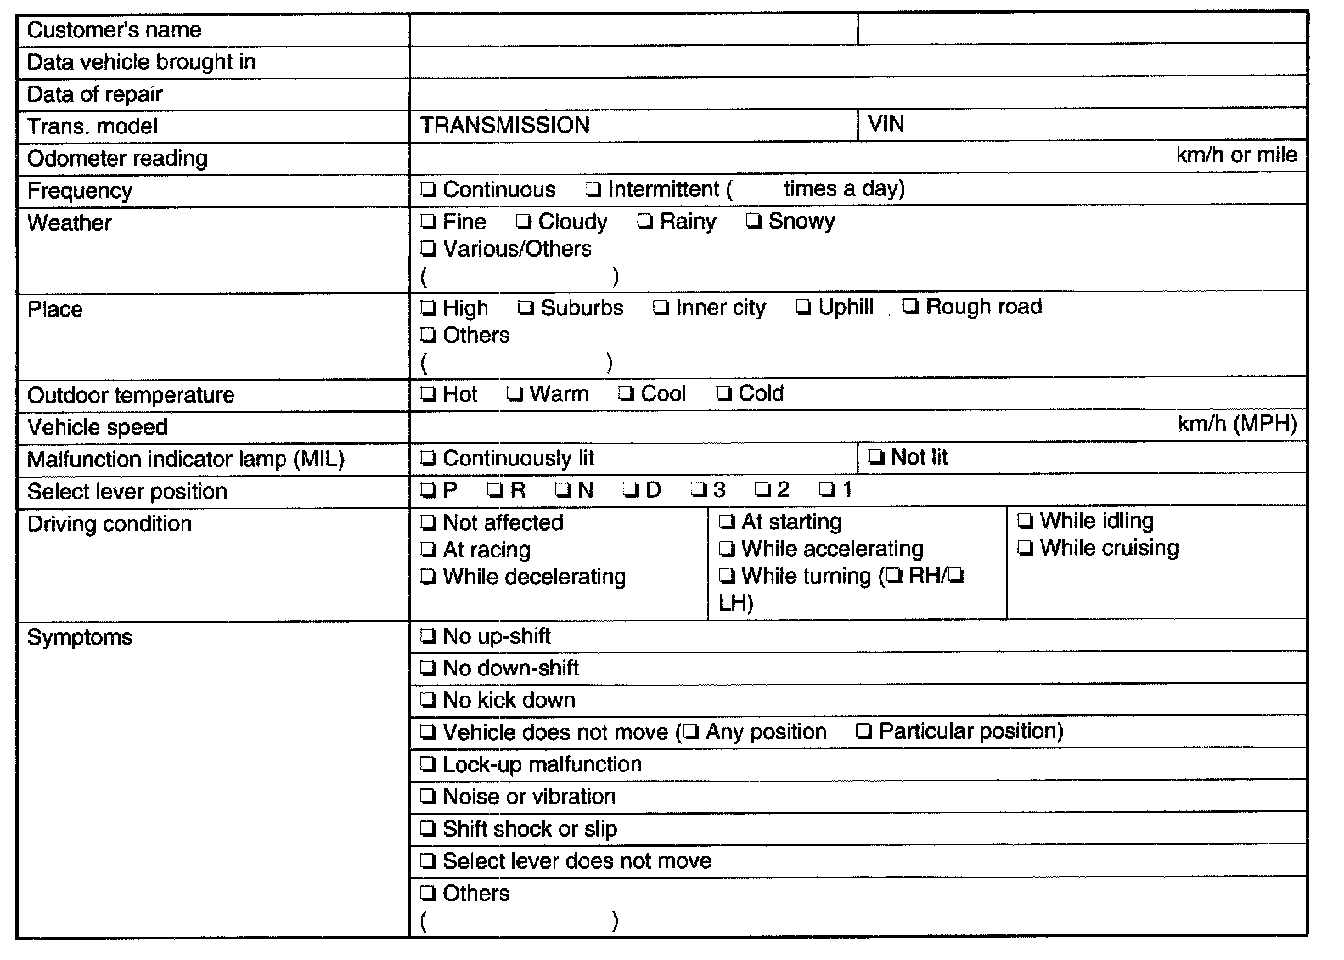 Customer's name
Data vehicle brought in
Data of repair
Trans. model TRANSMISSION VIN
Odometer reading km/h or mile
Frequency ❑ Continuous ❑ Intermittent ( times a day)
Weather ❑ Fine ❑ Cloudy ❑ Rainy ❑ Snowy
❑ Various/Others
( )
Place ❑ High ❑ Suburbs ❑ Inner city ❑ Uphill ❑ Rough road
❑ Others
( )
Outdoor temperature ❑ Hot ❑ Warm ❑ Cool ❑ Cold
Vehicle speed km/h (MPH)
Malfunction indicator lamp (MIL) ❑ Continuously lit ❑ Not lit
Select lever position ❑ P ❑ R ❑ N ❑ D ❑ 3 ❑ 2 ❑ 1
Driving condition ❑ Not affected ❑ At starting ❑ While idling
❑ At racing ❑ While accelerating ❑ While cruising
❑ While decelerating ❑ While turning (❑ RH/❑
LH)
Symptoms ❑ No up-shift
❑ No down-shift
❑ No kick down
❑ Vehicle does not move (❑ Any position ❑ Particular position)
❑ Lock-up malfunction
❑ Noise or vibration
❑ Shift shock or slip
❑ Select lever does not move
❑ Others
( )